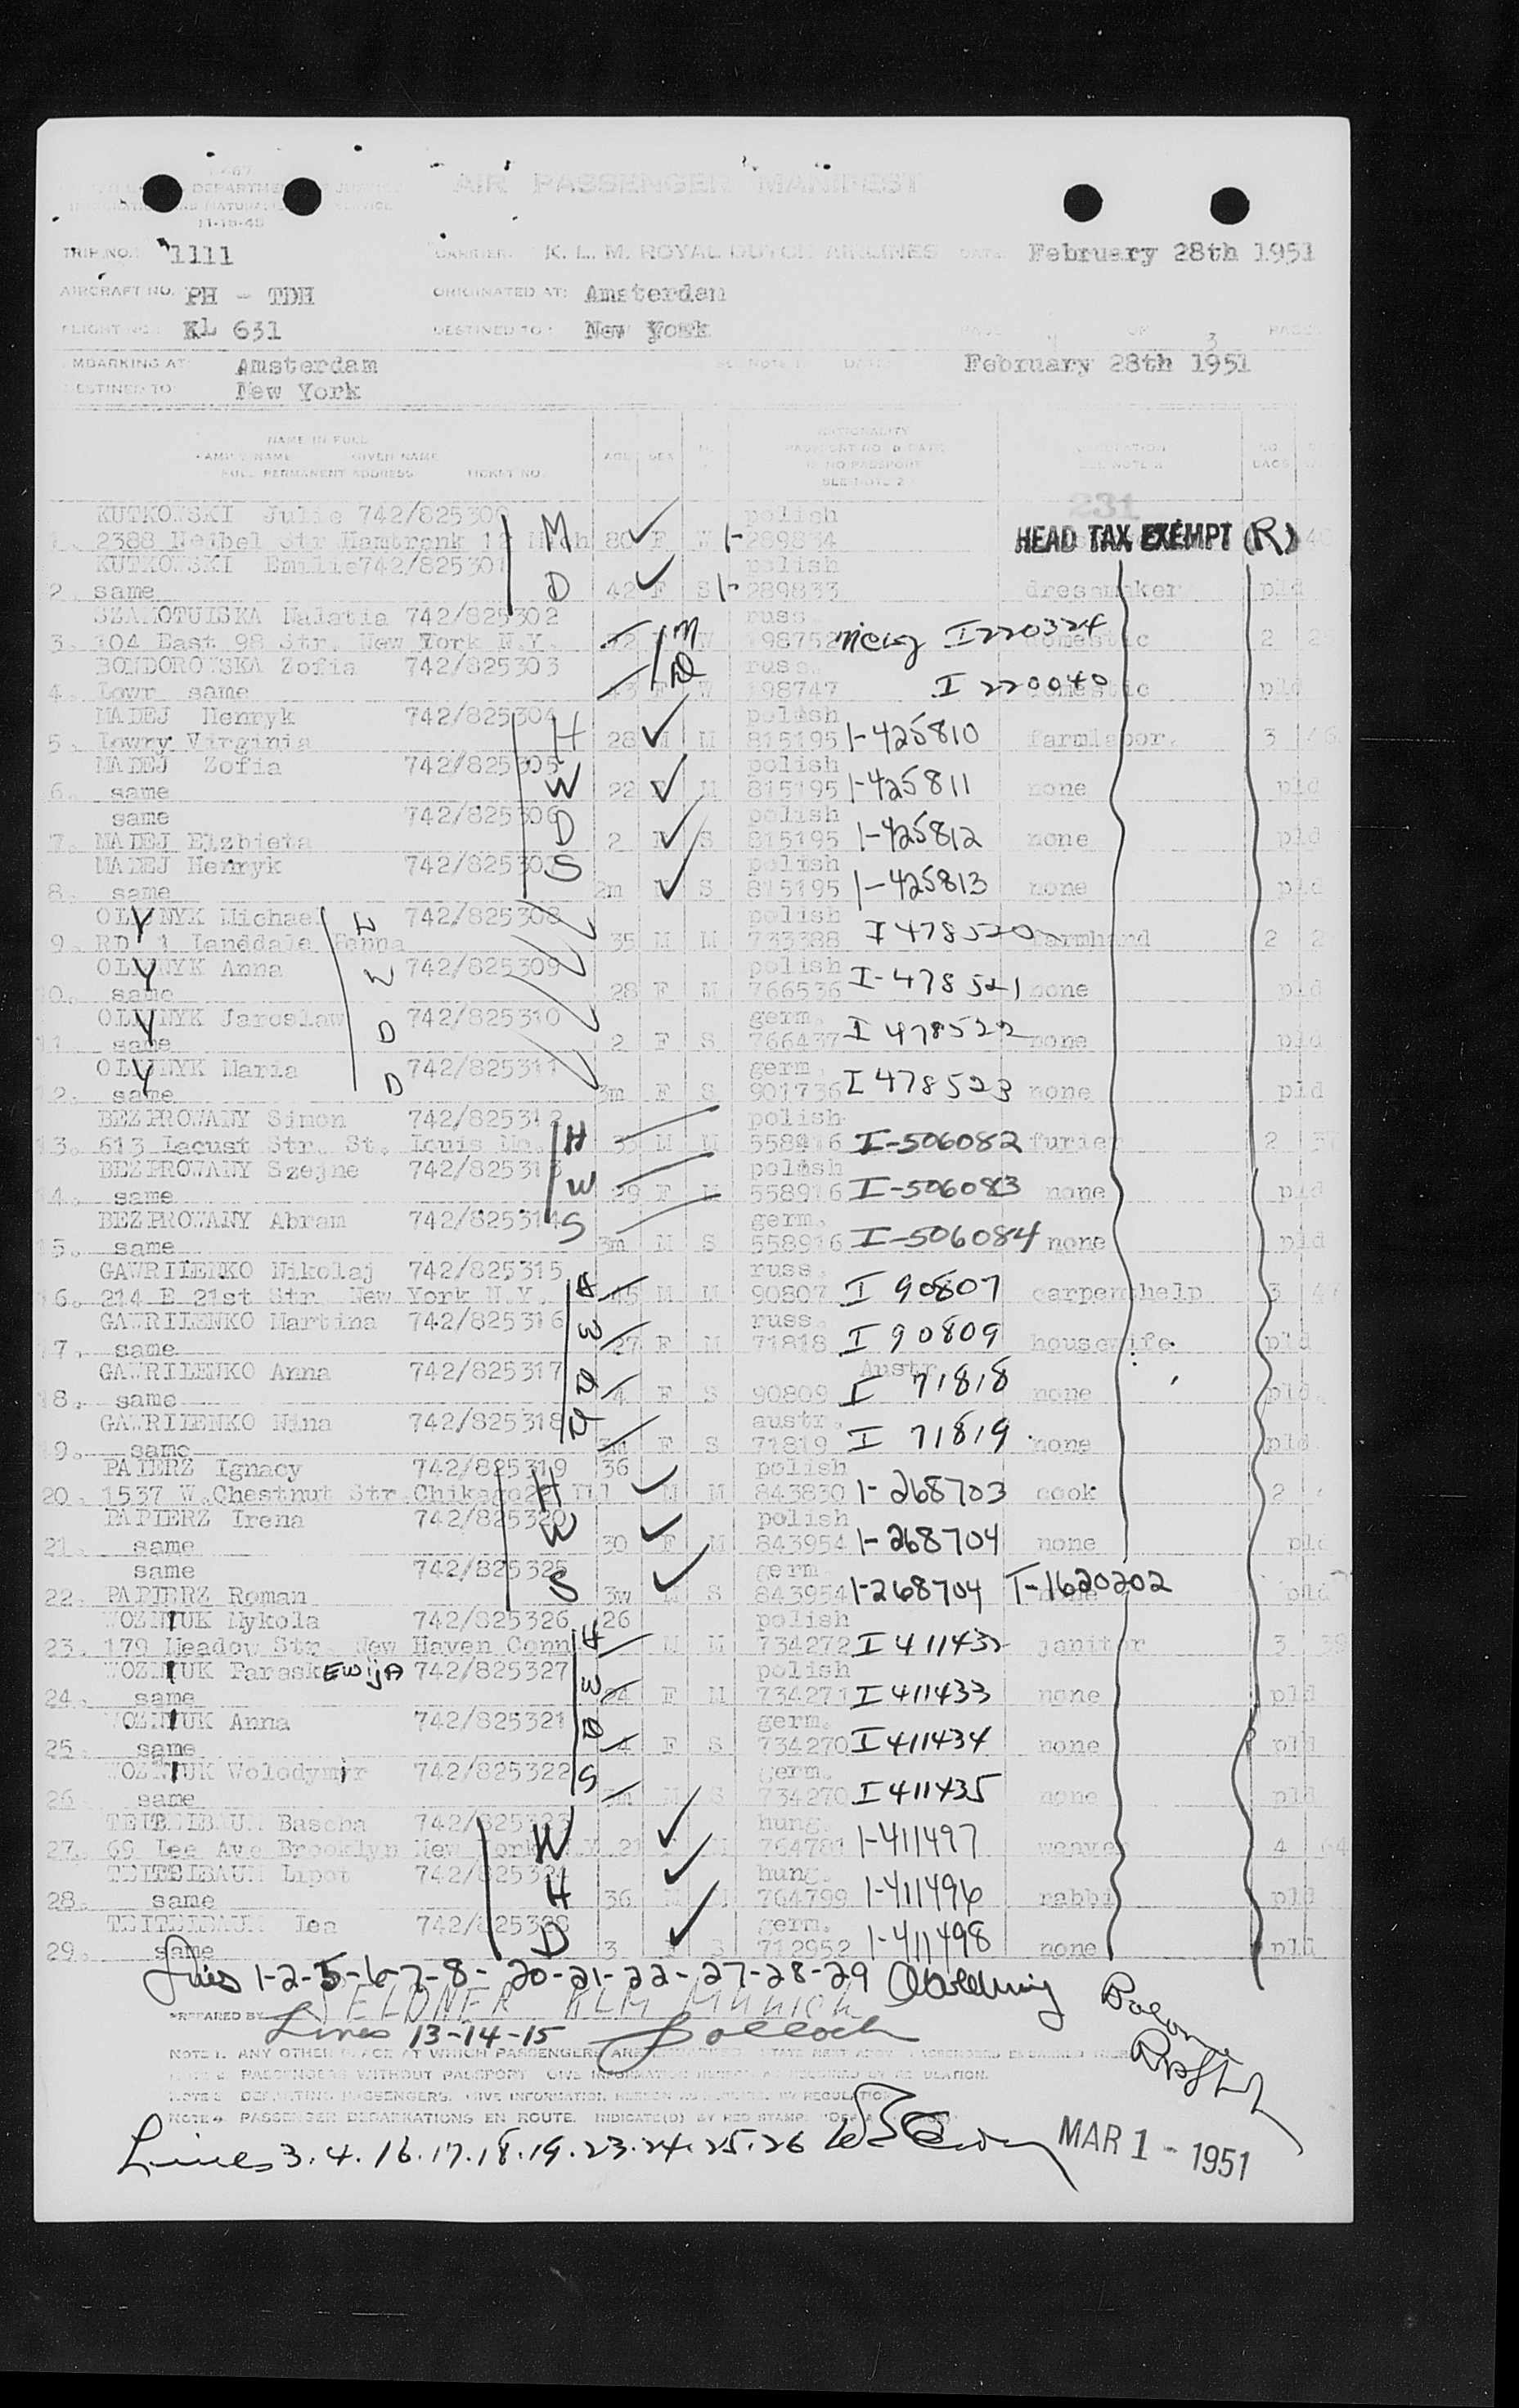 DEPARTMENT JUSTICE AIR PASSENGER MANIFEST
11-15-48
TRIP NO. 1111 CARRIER: K. L. M. ROYAL DUTCH AIRLINES DATE: February 28th 1951
AIRCRAFT NO. PH - TDH ORIGINATED AT: Amsterdam
FLIGHT NO. KL 631 DESTINED TO: New York 3
MBARKING AT Amsterdam DATE February 28th 1951
ESTINED TO New York
NAME IN FULL
FAMILY NAME GIVEN NAME AGE SEX
FULL PERMANENT ADDRESS TICKET NO.
NATIONALITY
PASSPORT NO. & DATE
IF NO PASSPORT
SEE NOTE 2
231
KUTKOWSKI Julie 742/825300 polish
M 80 F W 1- HEAD TAX EXEMPT (R)
KUTKOWSKI Emilie 742/825301 polish
2. same D 42 F S 1- 289833 dressmaker pld
742/825302 russ
3. 104 East 98 Str. New York N.Y. M W 198752 I220324 domestic 2
BONDOROWSKA Zofia 742/825303 russ.
4. Lowr same D F W 198747 I 220040 domestic pld
MADEJ Henryk 742/825304 polish
5. Lowry Virginia H 28 M M 815195 1-425810 farmlabor. 3
MADEJ Zofia 742/825305 polish
6. same W 22 F M 815195 1-425811 none pld
same 742/825306 polish
7. MADEJ Elzbieta D 2 S 815195 1-425812 none pld
MADEJ Henryk 742/825307 polish
8. same S 2m S 815195 1-425813 none pld
OLYNYK Michael 742/825308 polish
9. RD 1 Landdale Penna 35 M M 733388 I 478520 farmhand 2 2
OLYNYK Anna W 742/825309 polish
10. same 28 F M 766536 I-478521 none pld
OLYNYK Jaroslaw 742/825310 germ.
11. same D 2 F S 766437 I 478522 none pld
OLYNYK Maria 742/825311 germ.
12. same D 3m F S 901736 I 478523 none pld
BEZPROWANY Simon 742/825312 polish
13. 613 Locust Str. St. Louis Mo. H 35 M M 558916 I-506082 furier 2
BEZPROWANY Szejne 742/825313 polish
14. same W 29 F M 558916 I-506083 none pld
BEZPROWANY Abram 742/825314 germ.
15. same S 3m M S 558916 I-506084 none pld
GAWRILENKO Nikolaj 742/825315 russ.
16. 214 E 21st Str. New York N.Y. H 45 M M 90807 I 90807 carpenthelp 3
GAWRILENKO Martina 742/825316 russ.
17. same W 27 F M 71818 I 90809 housewife pld
GAWRILENKO Anna 742/825317 Austr.
18. same D 4 F S 90809 I 71818 none pld.
GAWRILENKO Nina 742/825318 austr.
19. same D 3m F S 71819 I 71819 none pld
PAPIERZ Ignacy 742/825319 36 polish
20. 1537 W.Chestnut Str.Chikago22 Ill H M M 843830 1-268703 cook 2
PAPIERZ Irena 742/825320 polish
21. same W 30 F M 843954 1-268704 none pld
same 742/825325 germ
22. PAPIERZ Roman S 3w M S 843954 1-268704 T-1620202 none pld
WOZNIUK Mykola 742/825326 26 polish
23. 179 Meadow Str. New Haven Conn H M M 734272 I 411432 janitor 3
WOZNIUK Paraskewija 742/825327 polish
24. same W 24 F M 734271 I 411433 none pld
WOZNIUK Anna 742/825321 germ.
25. same D 4 F S 734270 I 411434 none pld
WOZNIUK Wolodymir 742/825322 germ.
26 same S 3m M S 734270 I 411435 none pld
TEITELBAUM Bascha 742/825323 hung.
27. 69 Lee Ave Brooklyn New York N.Y. W 21 M 764701 1-411497 weaver 4
TEITELBAUM Lipot 742/825324 hung.
28. same H 36 M M 764799 1-411496 rabbi pld
TEITELBAUM Lea 742/825328 germ.
29. same D 3 S 712952 1-411498 none pld
Lines 1-2-5-6-7-8- 20-21-22-27-28-29
PREPARED BY KLM Munich
Lines 13-14-15 Pollock
NOTE 1. ANY OTHER PLACE AT WHICH PASSENGERS ARE
PASSENGERS WITHOUT PASSPORT GIVE INFORMATION
DEPARTING PASSENGERS. GIVE INFORMATION HEREON AS REQUIRED BY REGULATION
NOTE 4 PASSENGER DEBARKATIONS EN ROUTE. INDICATE (D) BY RED STAMP.
Lines 3.4.16.17.18.19.23.24.25.26
MAR 1 - 1951